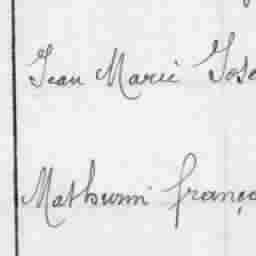 Jean Marie Jose
Mathurin franço